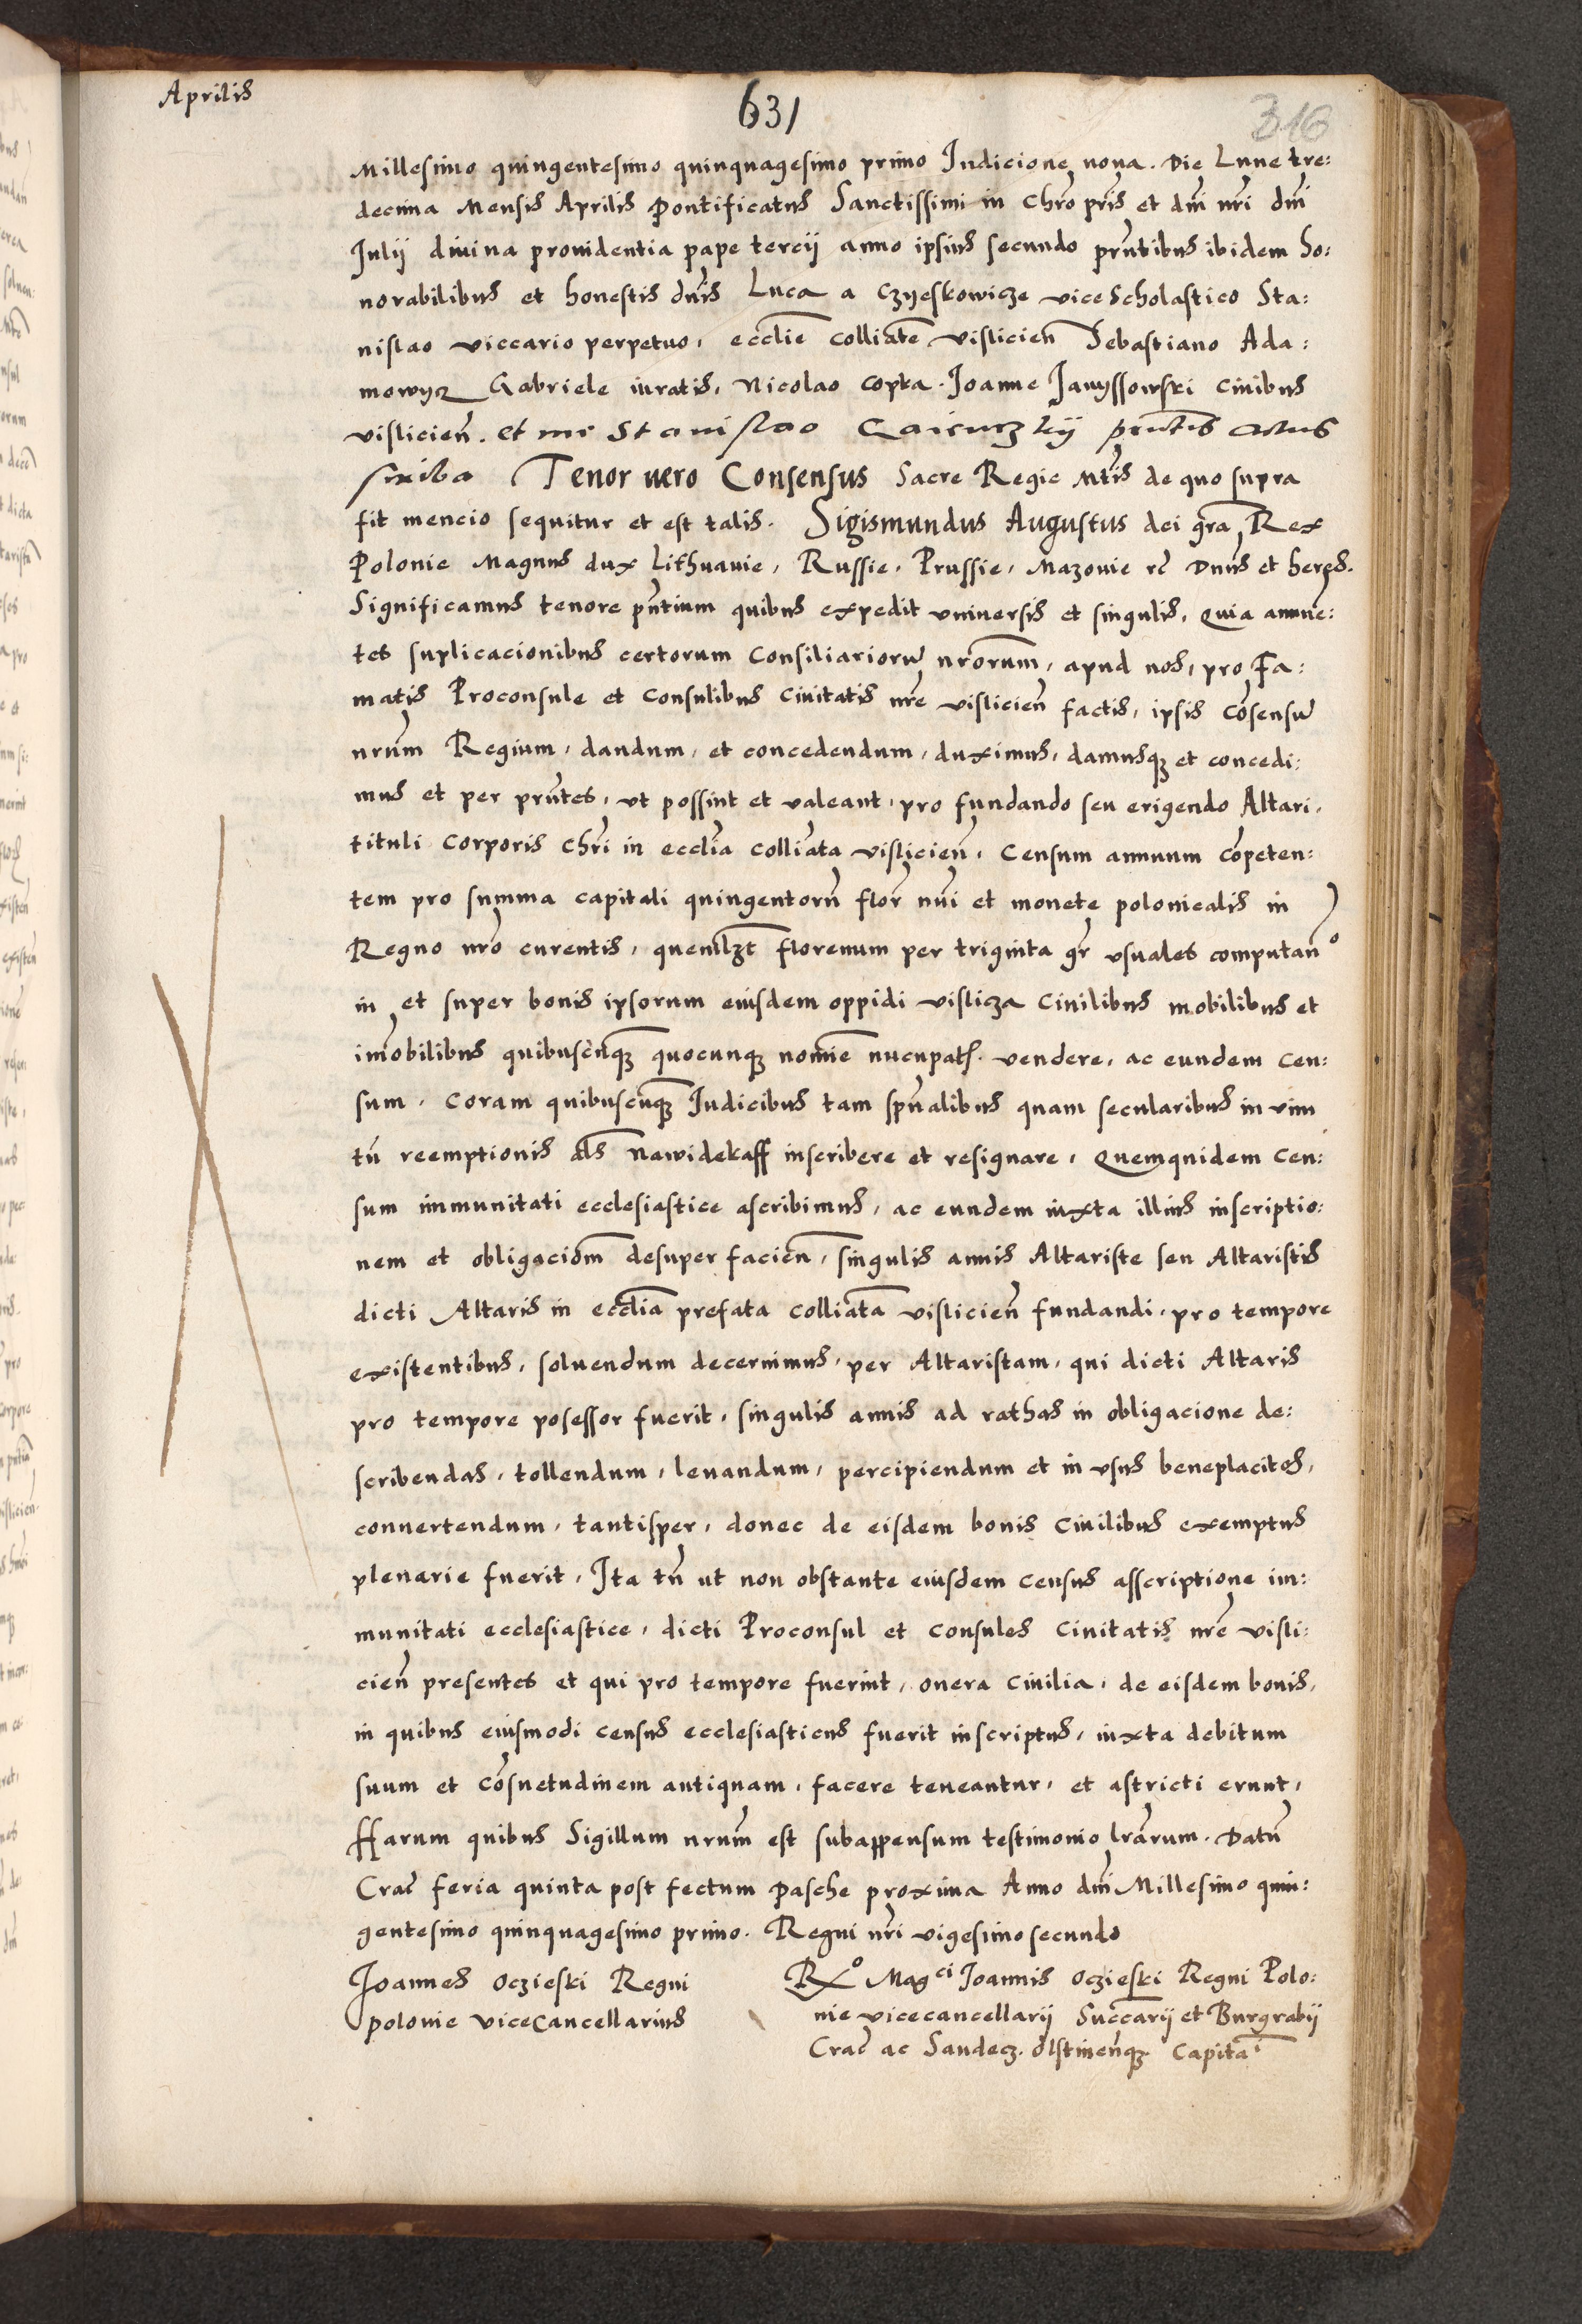 Aprilis
631
316
Millesimo quingentesimo quinquagesimo primo Indicione nona. Die Lune tre:
decima Mensis Aprilis Pontificatus Sanctissimi in Chro pris et dni nri dni
Julij diuina prouidentia pape tercij anno ipsius secundo prntibus ibidem ho:
norabilibus et honestis dnis Luca a Czyeskowicze viceScholastico Sta:
nislao viccario perpetuo, ecclie colliate vislicien Sebastiano Ada:
mowycz Gabriele iuratis, Nicolao copka. Joanne Janyssowski ciuibus
vislicien. et me Stanislao prntis actus
scriba Tenor uero Consensus Sacre Regie Mtis de quo supra
fit mencio sequitur et est talis. Sigismundus Augustus dei gra Rex
Polonie Magnus dux Lithuanie, Russie, Prussie, Mazouie rc Dnus et heres.
Significamus tenore pntium quibus expedit vniuersis et singulis, Quia annue:
tes suplicacionibus certorum Consiliarioru nrorum, apud nos, pro Fa:
matis Proconsule et Consulibus Ciuitatis nre vislicien factis, ipsis Cosensu
nrum Regium, dandum, et concedendum, duximus, damusq et concedi:
mus et per prntes, vt possint et valeant, pro fundando seu erigendo Altari,
tituli Corporis Chri in ecclia colliata vislicien, Censum annuum copeten:
tem pro summa capitali quingentoru flor nui et monete polonicalis in
Regno nro currentis, quemlzt florenum per triginta gr vsuales computan
in et super bonis ipsorum eiusdem oppidi vislicza Ciuilibus mobilibus et
imobilibus quibuscunq quocunq nomie nucupat. vendere, ac eundem cen:
sum, Coram quibuscunq Iudicibus tam spualibus quam secularibus in vim
tn reemptionis als nawidekaff inscribere et resignare, Quemquidem cen:
sum immunitati ecclesiastice ascribimus, ac eundem iuxta illius inscriptio:
nem et obligaciom desuper facien, singulis annis Altariste seu Altaristis
dicti Altaris in ecclia prefata colliata vislicien fundandi, pro tempore
existentibus, soluendum decernimus, per Altaristam, qui dicti Altaris
pro tempore posessor fuerit, singulis annis ad rathas in obligacione de:
scribendas, tollendum, leuandum, percipiendum et in vsus beneplacitos,
conuertendum, tantisper, donec de eisdem bonis Ciuilibus exemptus
plenarie fuerit, Ita tn ut non obstante eiusdem census asscriptione im:
munitati ecclesiastice, dicti Proconsul et Consules Ciuitatis nre visli:
cien presentes et qui pro tempore fuerint, onera Ciuilia, de eisdem bonis,
in quibus eiusmodi census ecclesiasticus fuerit inscriptus, iuxta debitum
suum et cosuetudinem antiquam, facere teneantur, et astricti erunt,
Harum quibus Sigillum nrum est subappensum testimonio lrarum. Datu
Crac feria quinta post fectum Pasche proxima Anno dni Millesimo quin:
gentesimo quinquagesimo primo. Regni nri vigesimo secundo
Joannes Oczieski Regni
polonie viceCancellarius
Rxo Magci Joannis Oczieski Regni Polo:
nie vicecancellarij Succarij et Burgrabij
Crac ac Sandecz. Olstinenq Capita